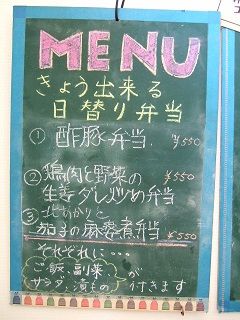 MENU
きょう出来る
日替り弁当
① 酢豚弁当 ¥550
② 鶏肉と野菜の
生姜ダレ炒め弁当
③
茄子の麻婆煮弁当 ¥550
それぞれに…
ご飯、副菜
サラダ、漬もの が付きます